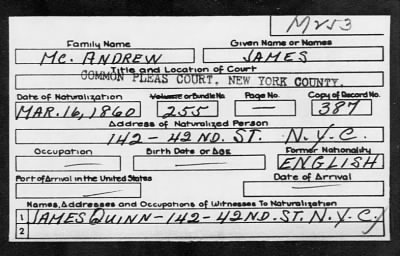 M253
Family Name Given Name or Names
MC. ANDREW JAMES
Title and Location of Court
COMMON PLEAS COURT, NEW YORK COUNTY.
Date of Naturalization Volume or Bundle No. Page No. Copy of Record No.
MAR. 16, 1860 255 — 387
Address of Naturalized Person
142 - 42 ND. ST. N.Y.C.
Occupation Birth Date or Age Former Nationality
— — ENGLISH
Port of Arrival in the United States Date of Arrival
— —
Names, Addresses and Occupations of Witnesses To Naturalization
1 JAMES QUINN - 142 - 42ND. ST. N.Y.C.
2